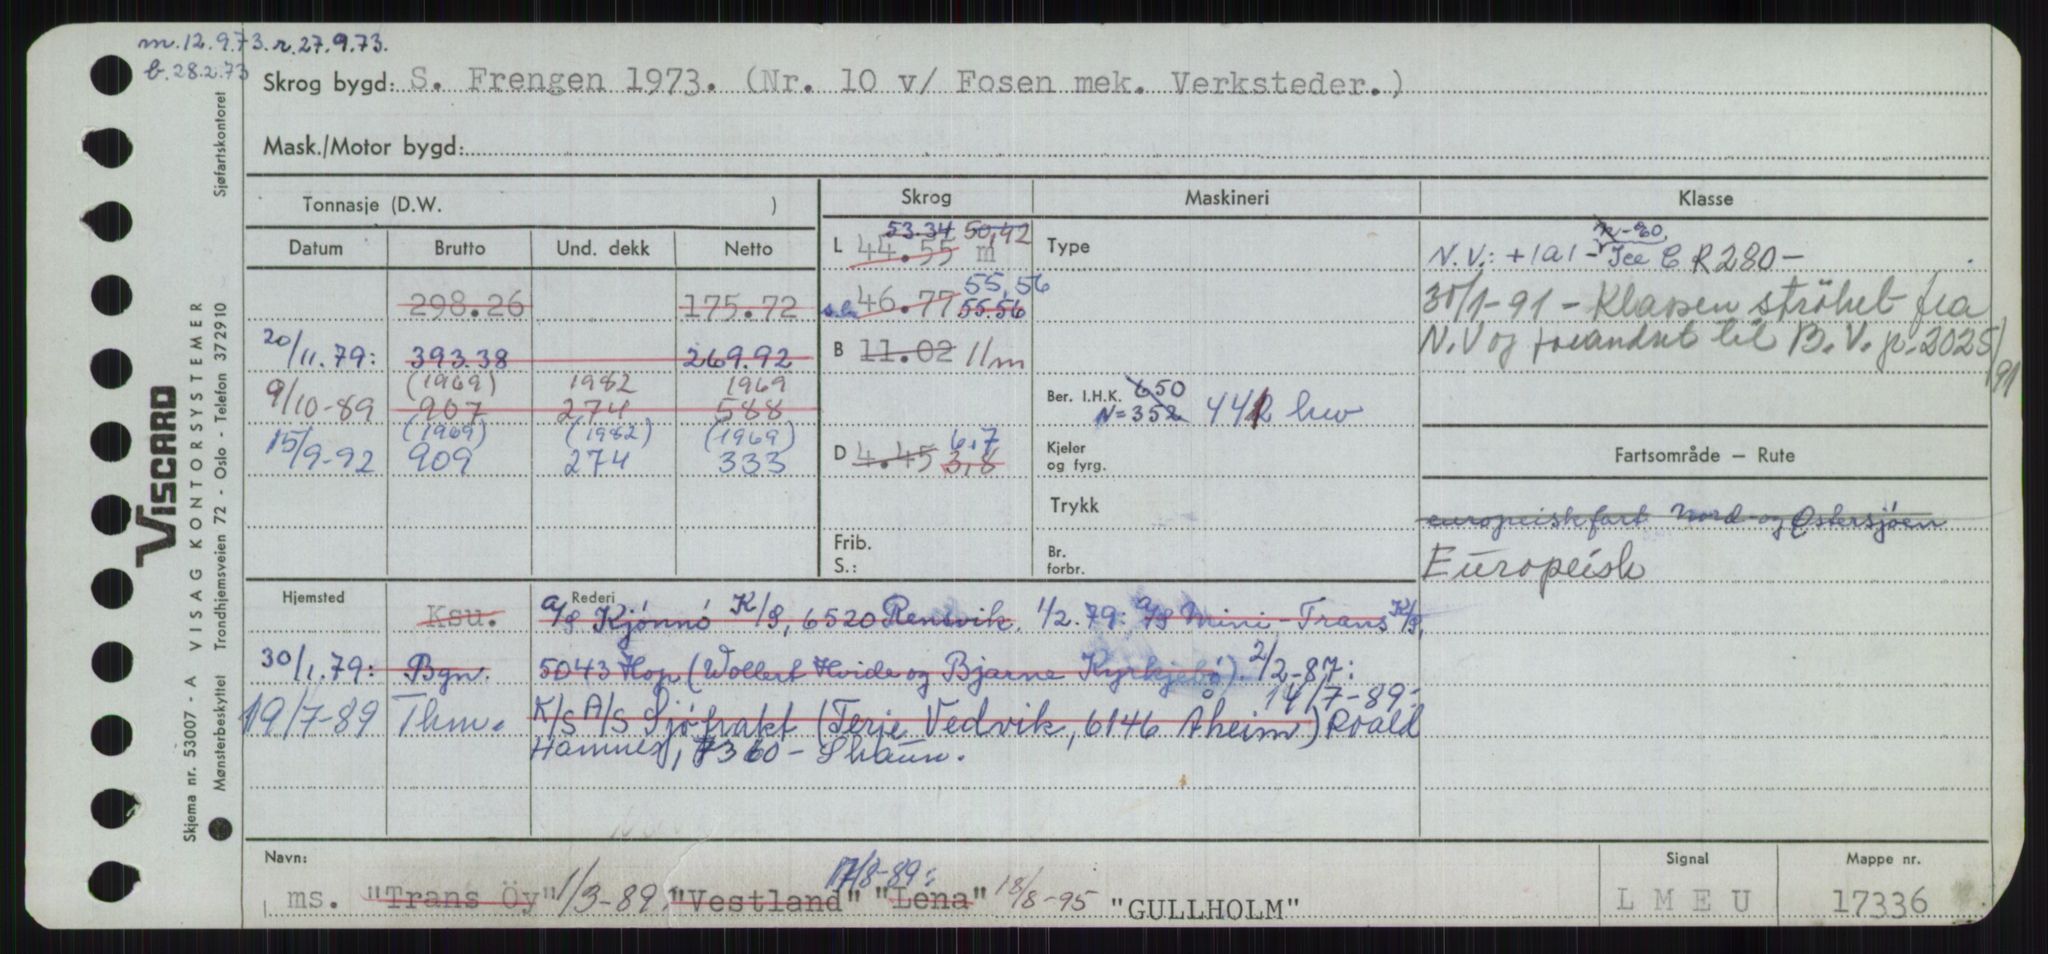 m.12.9.73. r.27.9.73.
b.28.2.73
Skrog bygd: S. Frengen 1973. (Nr. 10 v/ Fosen mek. Verksteder.)
Mask./Motor bygd:
Tonnasje (D.W. ) Skrog Maskineri Klasse
Datum Brutto Und. dekk Netto
L 44.55 m 53.34 50,42
298.26 175.72
46.77 55.56 55,56
20/11.79: 393.38 269.92
B 11.02 11m
(1969) 1982 1969
9/10-89 907 274 588
(1969) (1982) (1969)
15/9-92 909 274 333
D 4.45 3,8 6,7
Frib.
S.:
Type
Ber. I.H.K. 650
N=352 442 hw
Kjeler
og fyrg.
Trykk
Br.
forbr.
N.V.: +1A1 - Ice C R280-
30/1-91 - Klassen strøket fra
N.V og forandret til B.V. p-2025/91
Fartsområde — Rute
europeisk fart Nord-og Østersjøen
Europeisk
Hjemsted Rederi
Ksu. A/S Kjönnö K/S, 6520 Rensvik. 1/2.79: A/S Mini-Trans K/S,
30/1.79: Bgn. 5043 Hop (Wollert Hvide og Bjarne Kyrkjebö). 2/2-87:
19/7-89 Thm. K/S A/S Sjöfrakt (Terje Vedvik, 6146 Åheim) 14/7-89: Roald
Hamnes, 7360-Skaun.
Navn: Signal Mappe nr.
ms. "Trans Öy" 1/3-89 "Vestland" 17/8-89: "Lena" 18/8-95 "GULLHOLM" L M E U 17336
VISCARD
Skjema nr. 53007 - A VISAG KONTORSYSTEMER
Mønsterbeskyttet Trondhjemsveien 72 - Oslo - Telefon 372910 Sjøfartskontoret